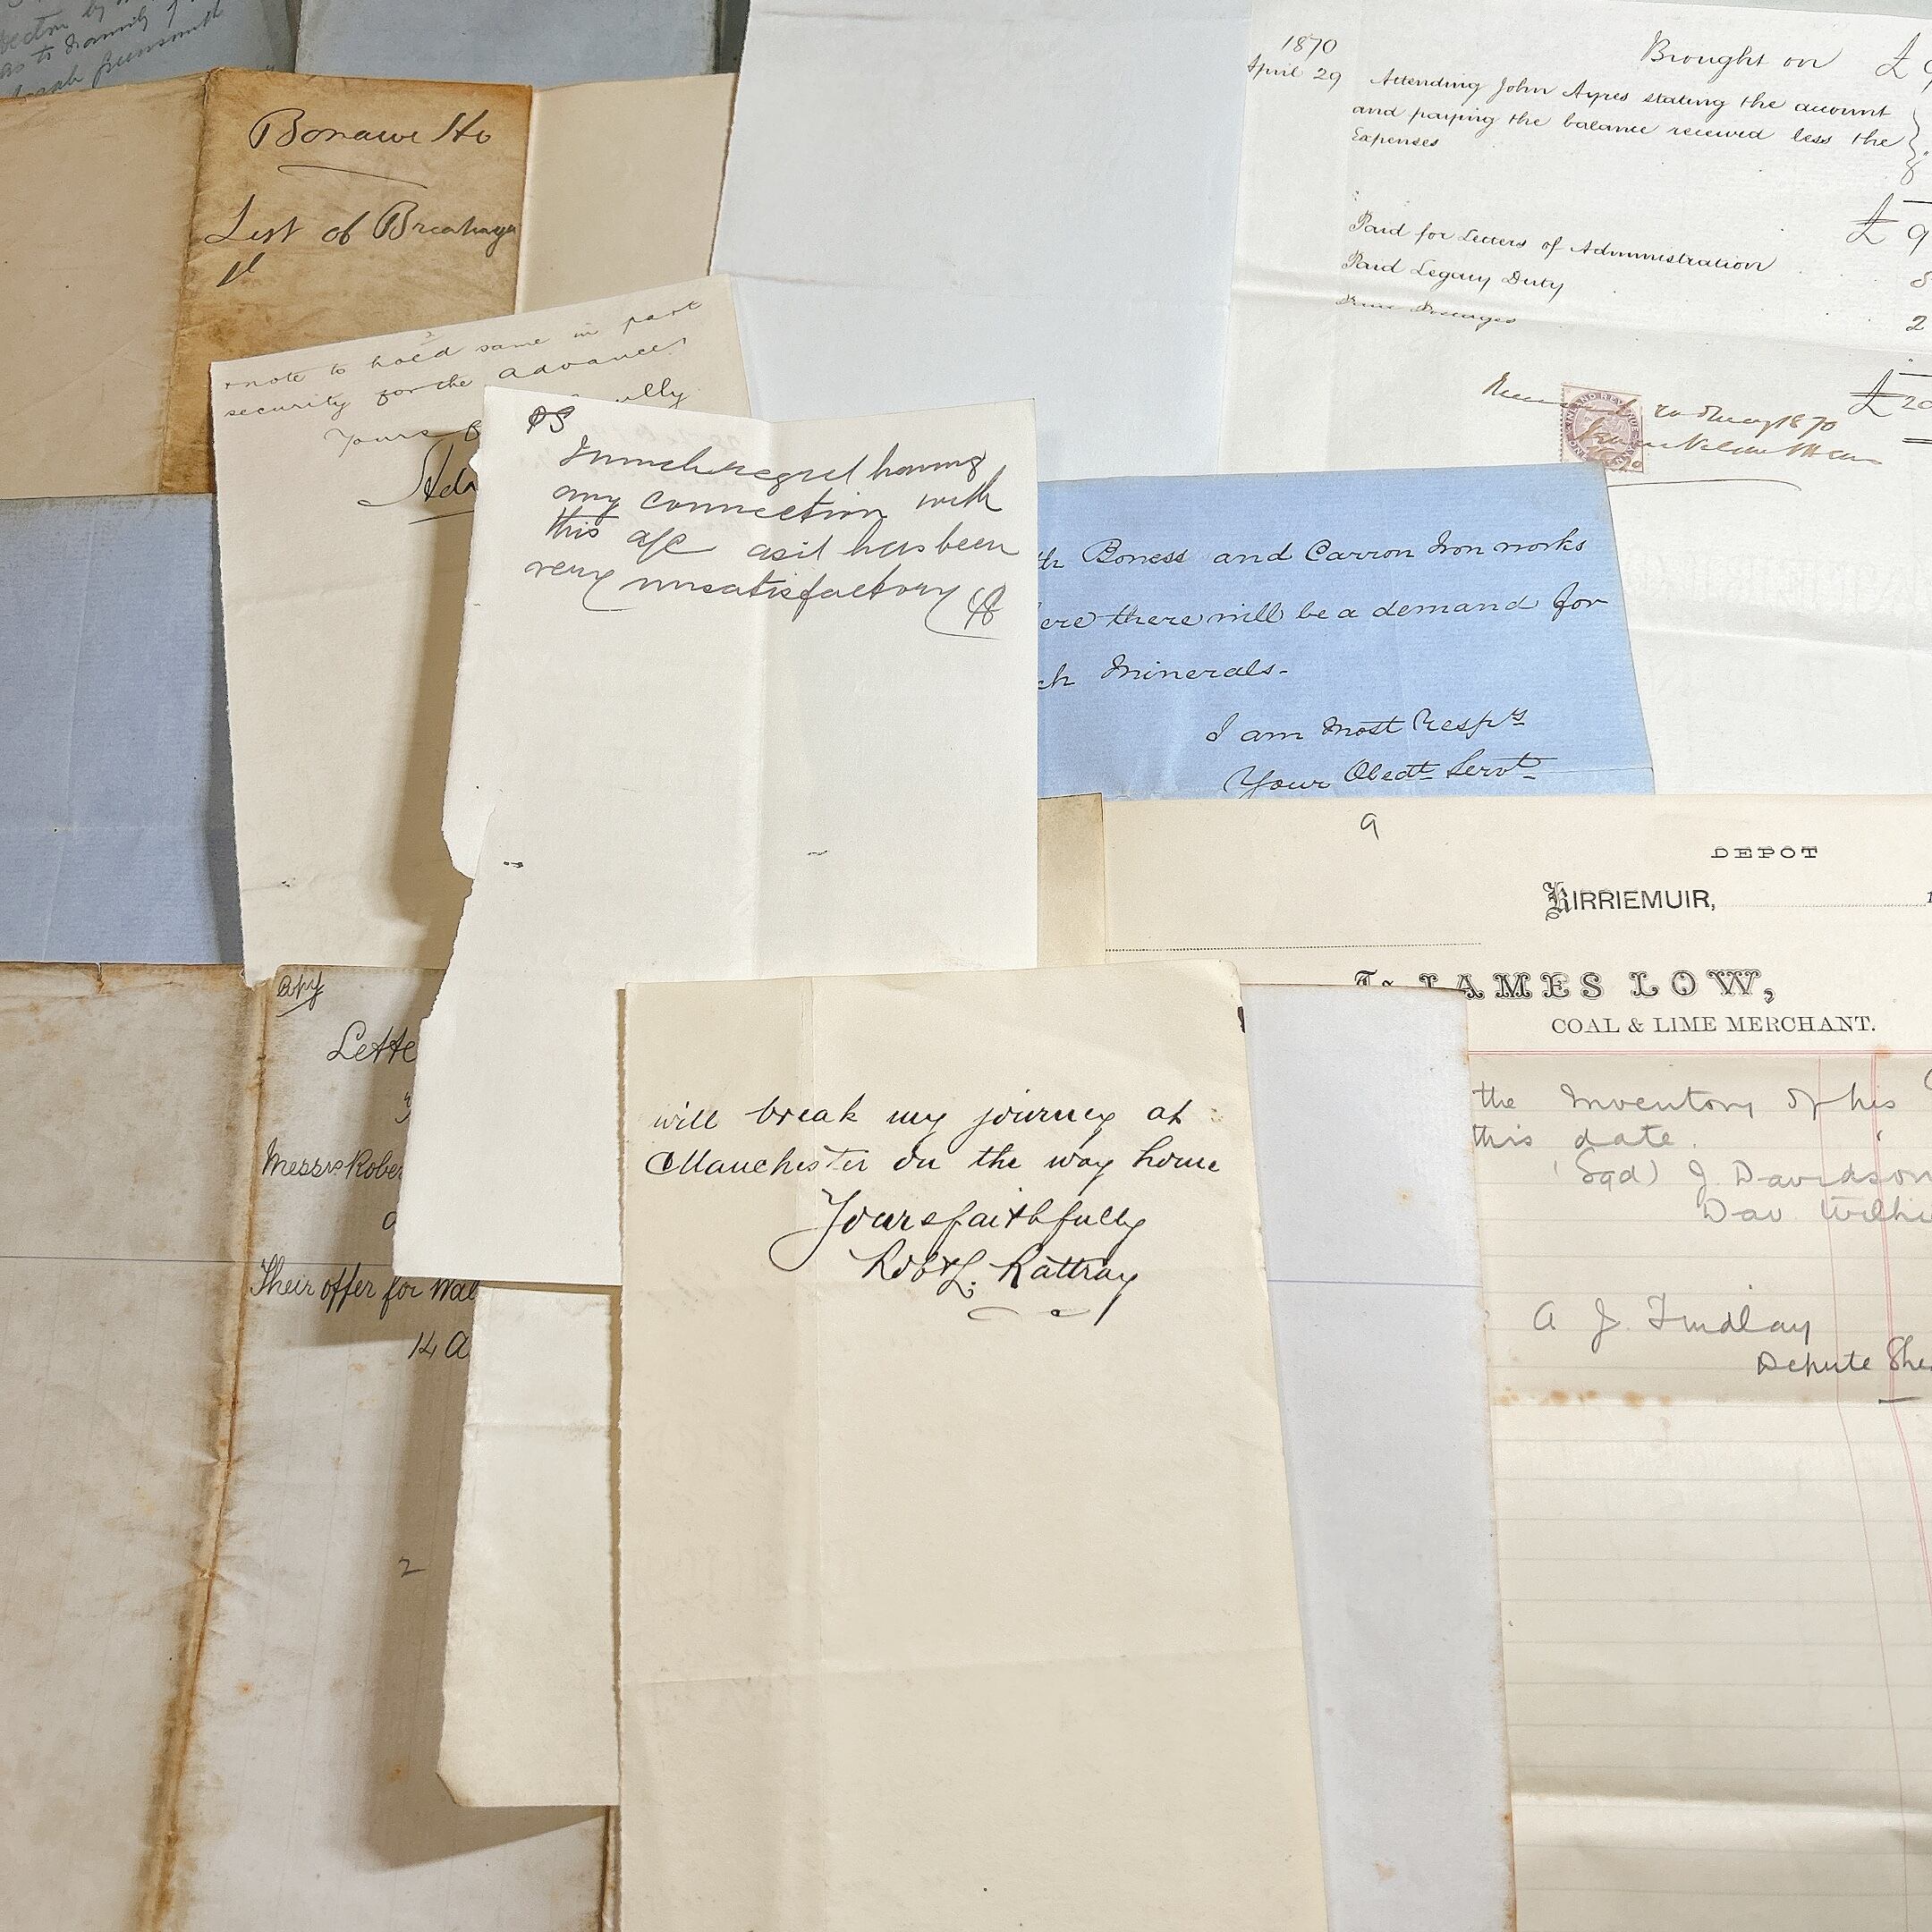 as to
Bonawe Ho
List of Breakage
note to hold same in part
security for the advance
Yours
PS
I much regret having
any connection with
this a/c as it has been
very unsatisfactory
1870
Brought on £
April 29 Attending John Ayres stating the account
and paying the balance received less the
Expenses
£ 9
Paid for Letters of Administration
Paid Legacy Duty
2
£ 20
May 1870
INLAND REVENUE
Boness and Carron Iron works
there will be a demand for
Minerals.
I am Most Respys
Your Obedt Servt
9
DEPOT
KIRRIEMUIR,
JAMES LOW,
COAL & LIME MERCHANT.
the Inventory of his
this date.
(Sgd) J Davidson
Dav
A J Findlay
Depute
Copy
Messrs
Their offer for
14 A
2
will break my journey at
Manchester on the way home
Yours faithfully
Robt L. Rattray